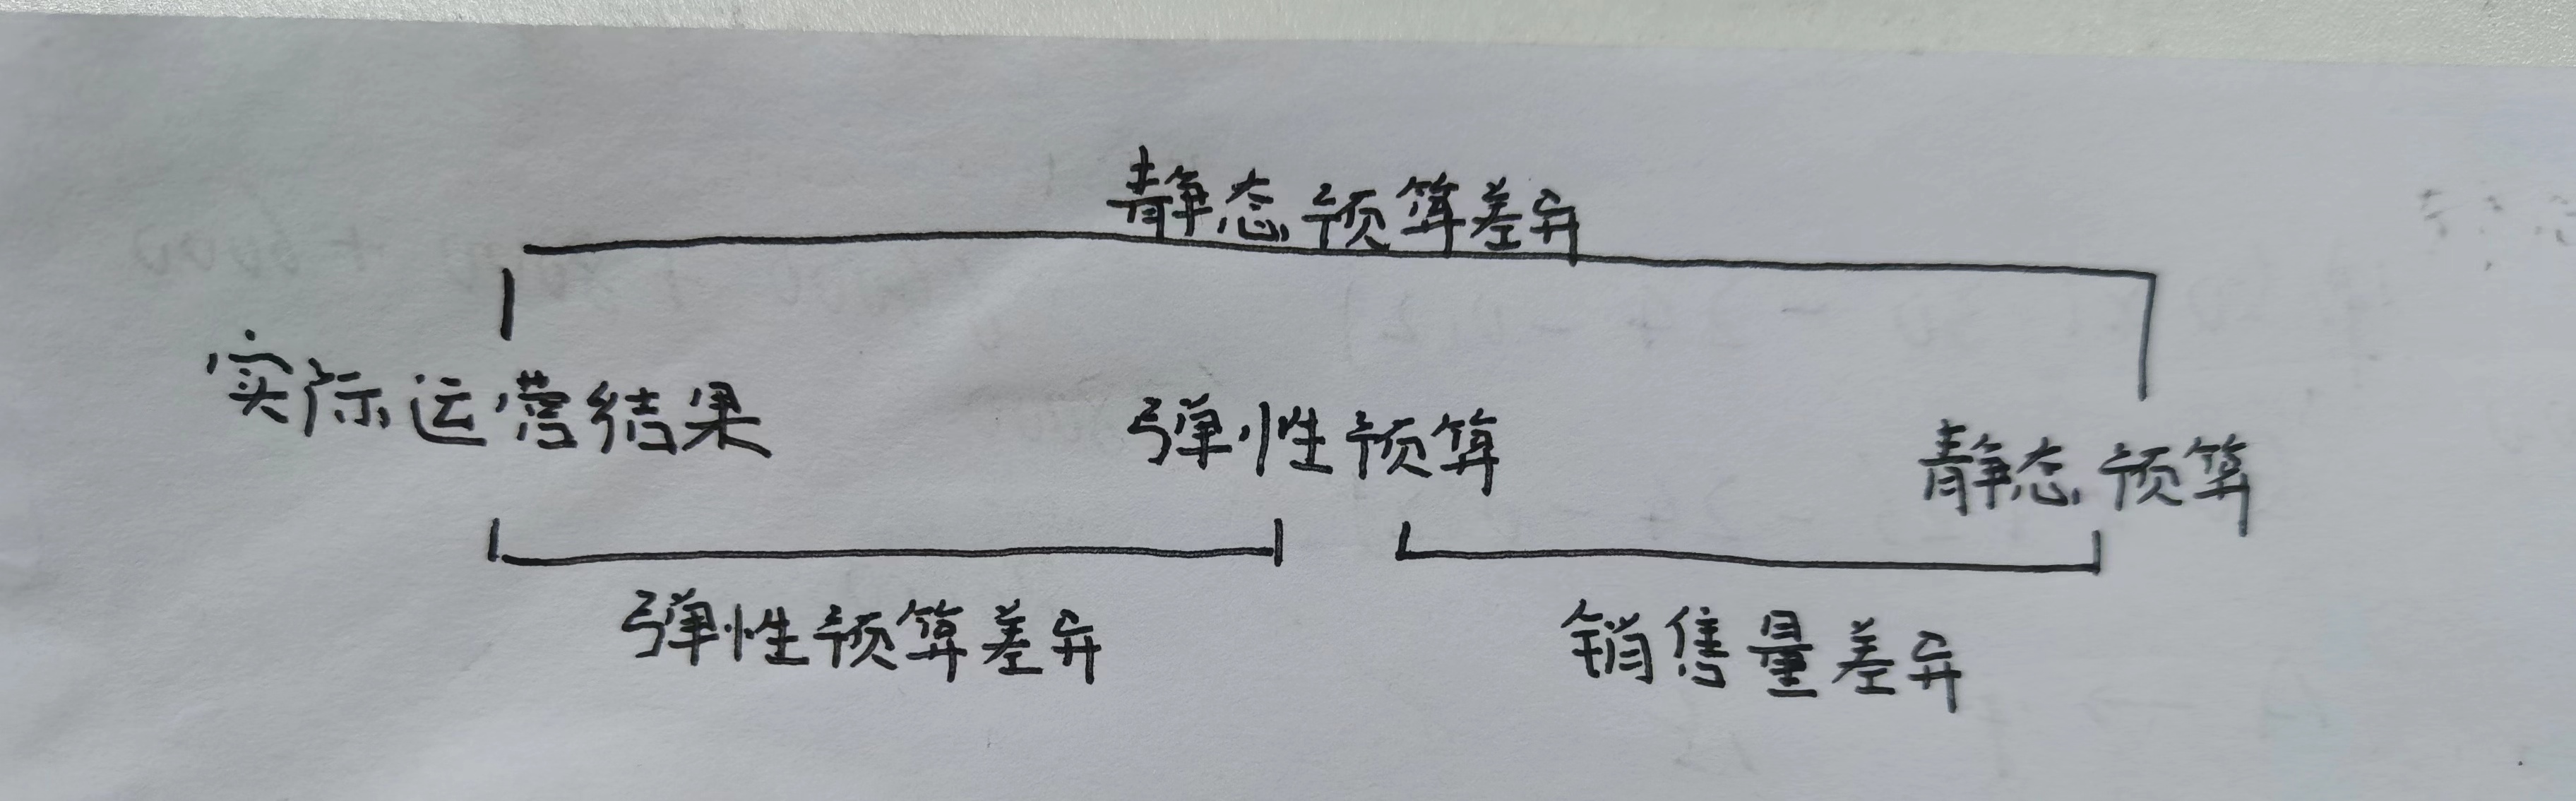 静态预算差异
实际运营结果 弹性预算 静态预算
弹性预算差异 销售量差异